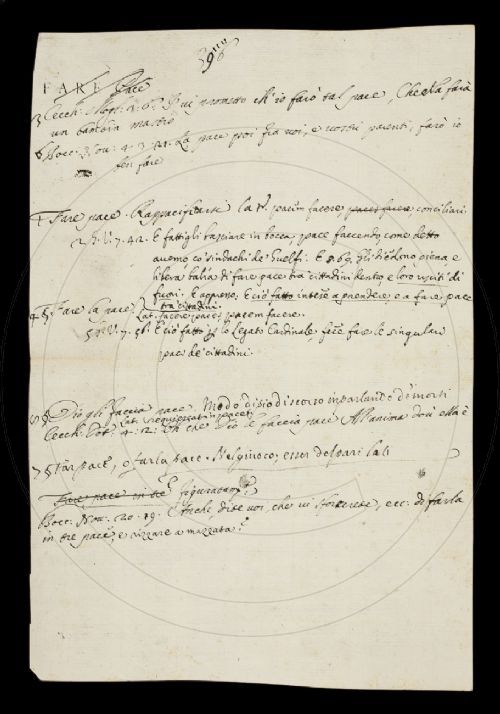 396
FARE Pace
3 Cecch: Mogl: 4. 6. I' vi prometto ch' io farò tal pace, Che la farà
un bambin mastio
6 Bocc: Nov: 4. La pace poi fra voi, e vostri parenti, farò io
ben fare
1 Fare pace. Rappacificarsi lat. pacem facere, pacem facere conciliari
2. G. V. 7. 42. E fattigli basciare in bocca, pace faccendo, come detto
avemo co' sindachi de' Guelfi. E 8. 69. gli diedono piena e
libera balía di fare pace tra' cittadini dentro e loro usciti di
fuori. E appresso. E ciò fatto intese a prendere, e a fare pace
tra cittadini.
4 § Fare la pace. Lat. facere pacem pacem facere.
5 G. V. 7. 56. E ciò fatto lo Legato Cardinale fece fare le singulari
paci de' cittadini.
8 § Dio gli faccia pace. Modo di pio discorso in parlando de' morti
lat. requiescat in pace
Cecch: Dot: 4. 12: Oh che Dio le faccia pace All' anima dov' ella è
7 § Far pace, o farla pace. Nel giuoco, esser del pari
Fare pace in tre figuratam.
Bocc: Nov: 20. 19. E anche, dite voi, che vi sforzerete, ecc: di farla
in tre pace, e rizzare a mazzata?